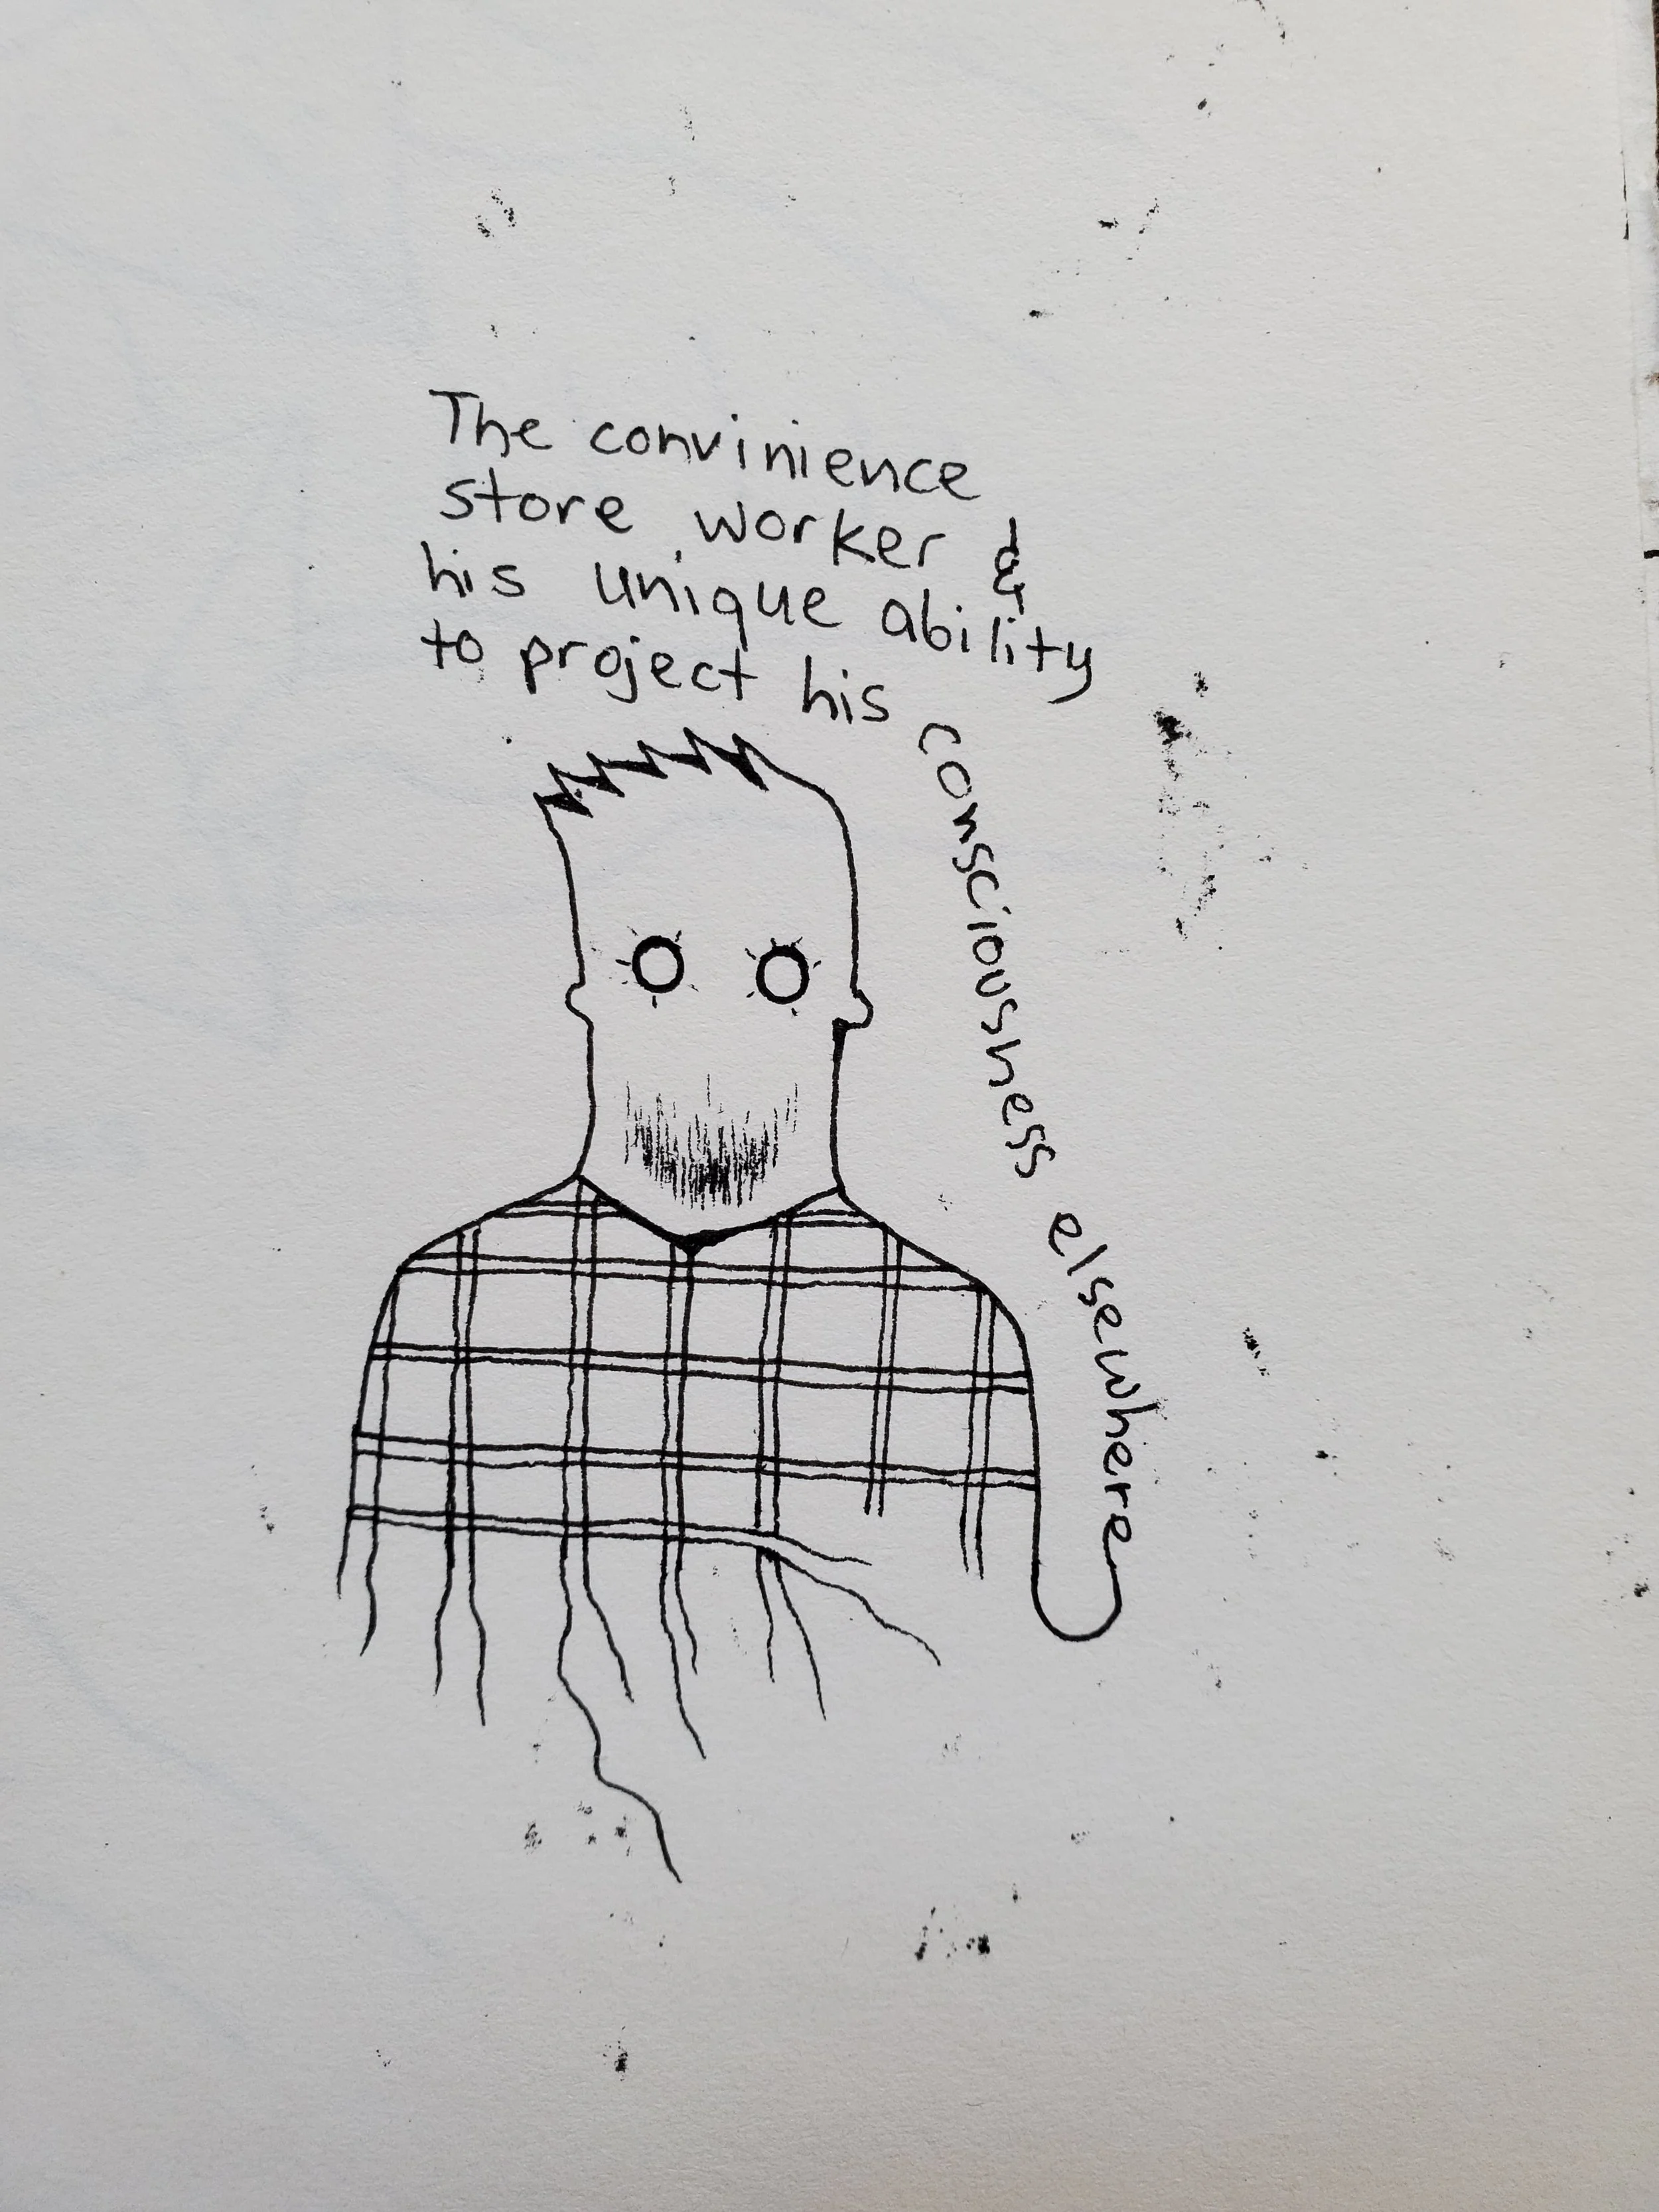 The convinience
store worker &
his unique ability
to project his
consciousness elsewhere